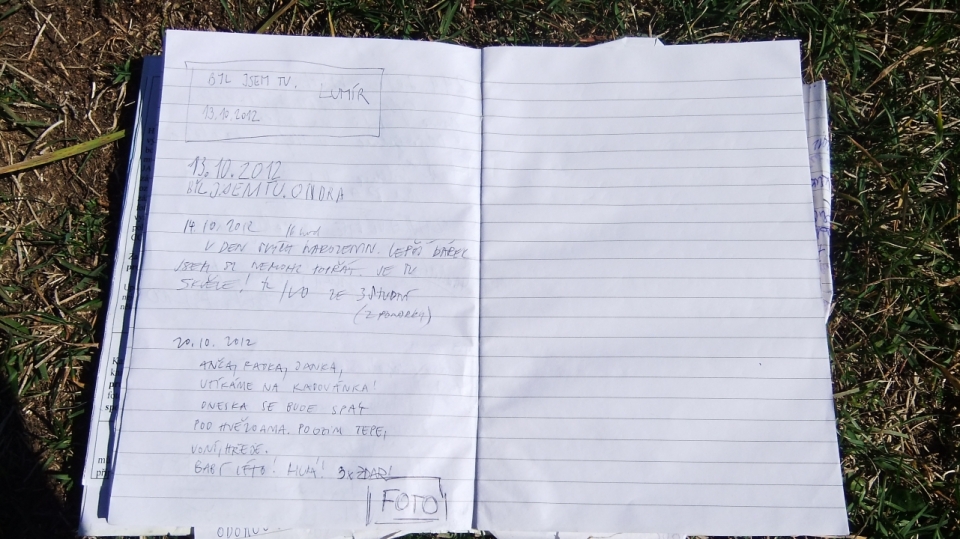 BYL JSEM TU. LUMÍR
13.10.2012
13.10.2012
BYL JSEM TU. ONDRA
14.10.2012 16 hod
V DEN MÝCH NAROZENIN. LEPŠÍ DÁREK
JSEM SI NEMOHL POPŘÁT. JE TU
SKVĚLE!
(Z PONORKY)
20.10.2012
BAĎKA, DANKA,
UTÍKÁME NA
DNESKA SE BUDE SPÁT
POD HVĚZDAMA. PODZIM TEPE,
VONÍ, HŘEJE.
BABÍ LÉTO! 3x ZDAR!
FOTO